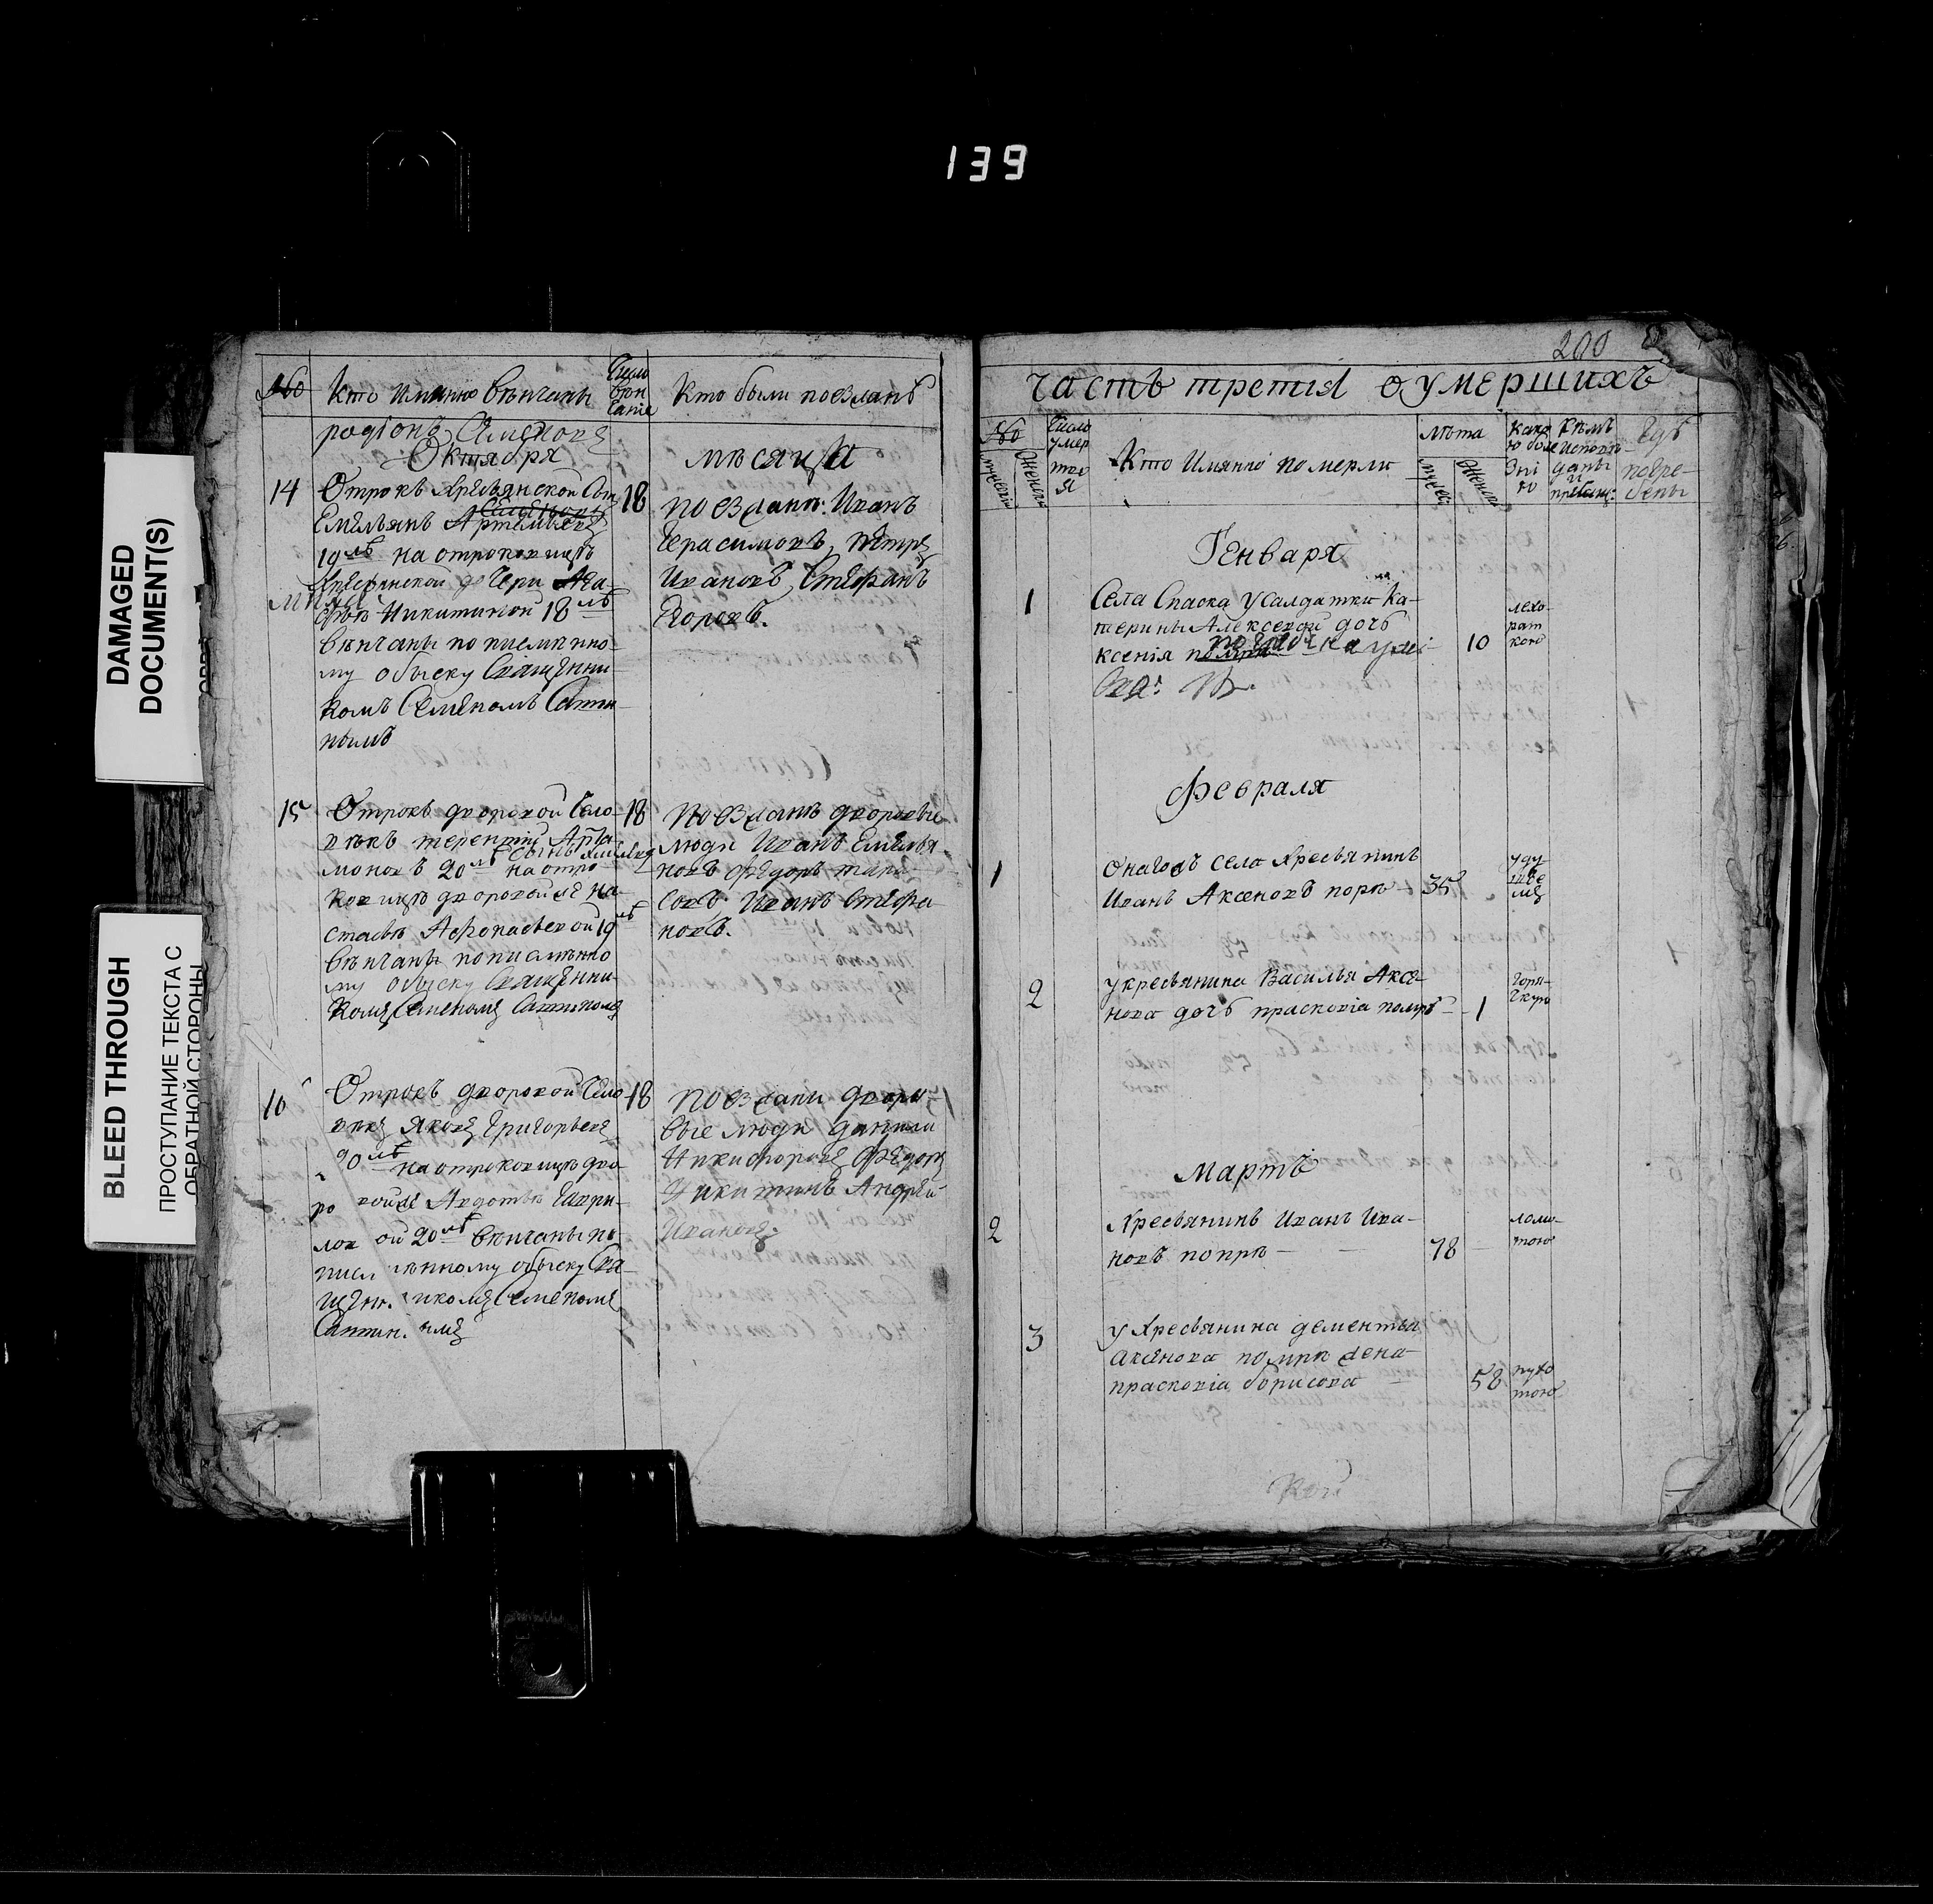 139
DAMAGED
DOCUMENT(S)
BLEED THROUGH
ПРОСТУПАНИЕ ТЕКСТА С
ОБРАТНОЙ СТОРОНЫ
№
Кто имянно вѣнчаны
Число
вѣн
чанiя
Кто были поезжанѣ
родiонъ Семеновъ
Октября
мѣсяца
14
Отрокъ кресьянской сынъ
Емельянъ Артемьевъ
19 лѣ на отроковицѣ
кресьянской дочери Ага
фьѣ Никитиной 18 лѣ
вѣнчаны по писменно
му обыску Священни
комъ Семеномъ Сатти
нымъ
18
поезжани: Иванъ
Герасимовъ, петръ
Ивановъ, Стефанъ
Егоровъ.
15
Отрокъ дворовой чело
вѣкъ терентiй Арта
моновъ 20 лѣ на отро
ковицѣ дворовой же на
стасьѣ Афонасьевой 19 лѣ
вѣнчаны по писмѣнно
му обыску Священни
комъ Семеномъ Саттиномъ
18
поезжанѣ дворовые
люди Иванъ Емелья
новъ Федоръ тара
совъ Иванъ Стефа
новъ.
16
Отрокъ дворовой чело
вѣкъ Яковъ Григорьевъ
20 лѣ на отроковицѣ дво
ровой же Авдотьѣ Гаври
ловой 20 лѣ вѣнчаны по
писмѣнному обыску Свя
щенникомъ Семеномъ
Саттинымъ
18
поезжани дворо
вые люди данила
Никифоровъ Федоръ
Никитинъ Андрей
Ивановъ.
200
часть третiя о умершихъ
№
Число
умер
шия
Кто Имянно померли
лѣта
какою боле
знiю
кемъ исповѣ
даны
и
прiбещ:
Гдѣ
погре
бены
Генваря
1
Села Спаска у салдатки Ка
терины Алексевой дочь
ксенiя
10
лихо
рат
кою
Февраля
1
Онагожъ села кресьянинъ
Иванъ Аксеновъ
35
уду
шье
мъ
2
у кресьянина Василья Аксе
нова дочь прасковiя помрѣ
1
горя
чкую
Мартъ
2
Кресьянинъ Иванъ Ива
новъ помрѣ
78
ломо
тою
3
у кресьянина дементья
Аксенова помрѣ жена
прасковiя борисова
58
Кой